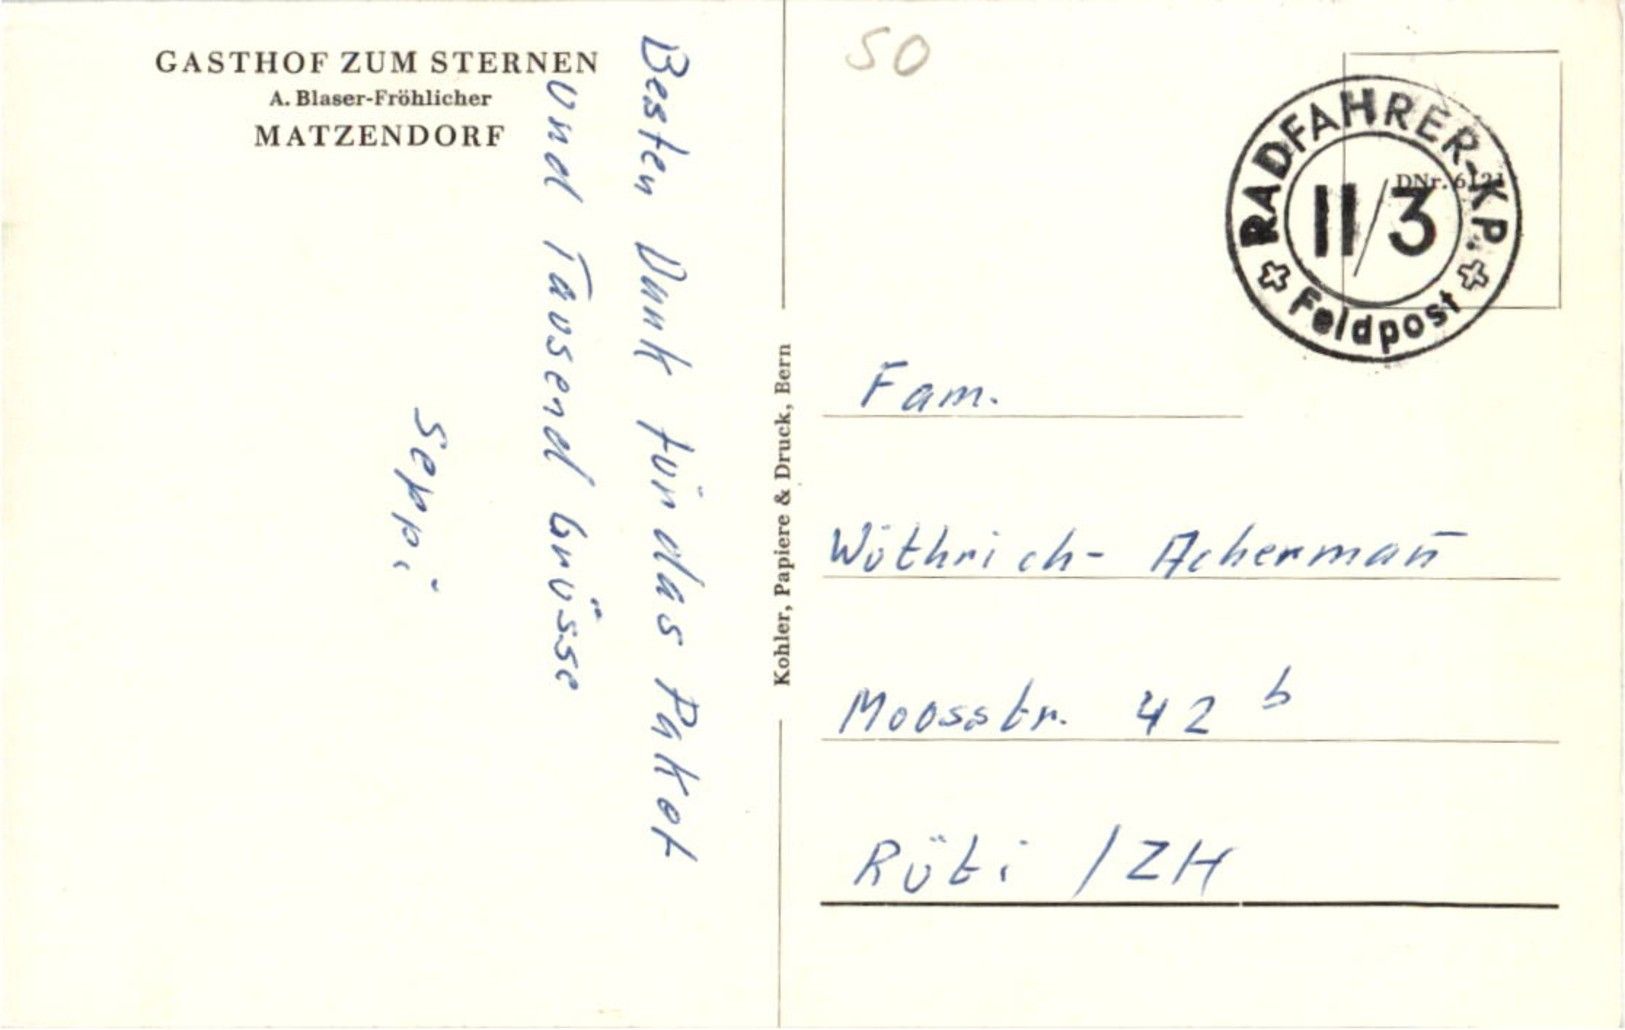 GASTHOF ZUM STERNEN
A. Blaser-Fröhlicher
MATZENDORF
Besten Dank für das Paket
und Tausend Grüsse
Seppi
Kohler, Papiere & Druck, Bern
SO
RADFAHRER-KP.
II/3
Feldpost
DNr. 6121
Fam.
Wüthrich- Achermañ
Moosstr. 42 b
Rüti / ZH